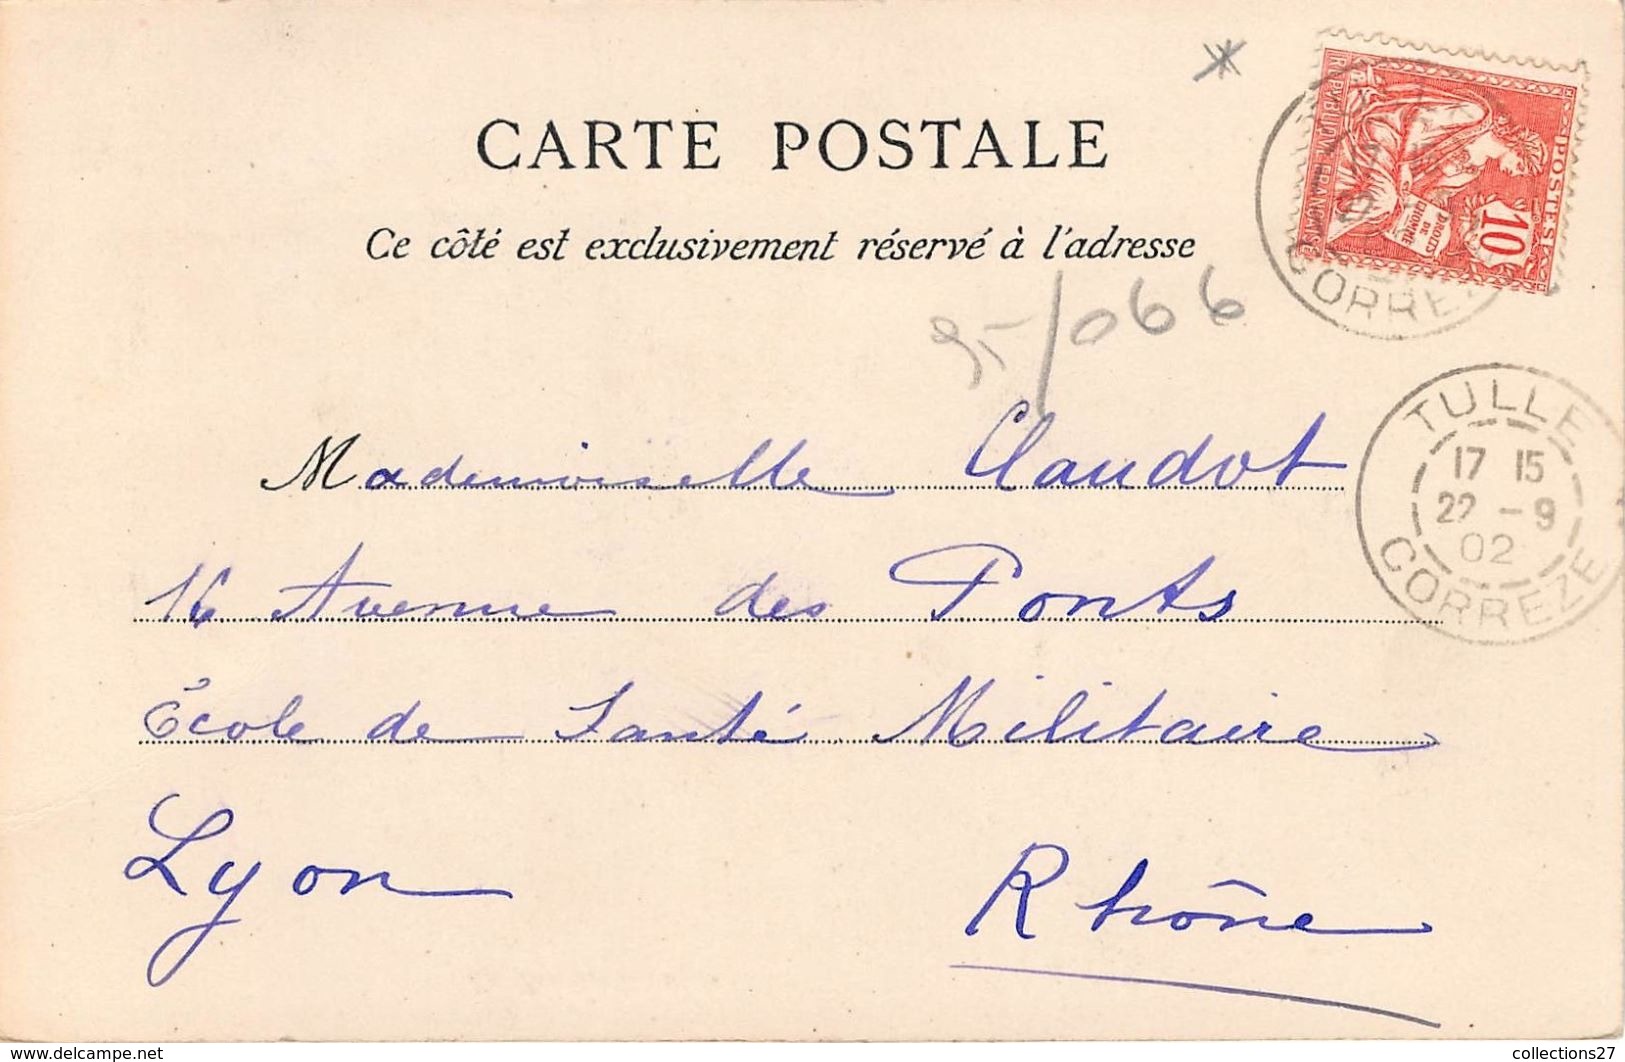 CARTE POSTALE
Ce côté est exclusivement réservé à l'adresse
RÉPUBLIQUE FRANÇAISE
POSTES
10
DROITS DE L'HOMME
CORRÈZE
066
TULLE
17 15
22 - 9
02
CORRÈZE
Mademoiselle Claudot
16 Avenue des Ponts
École de Santé Militaire
Lyon Rhône
www.delcampe.net
collections27